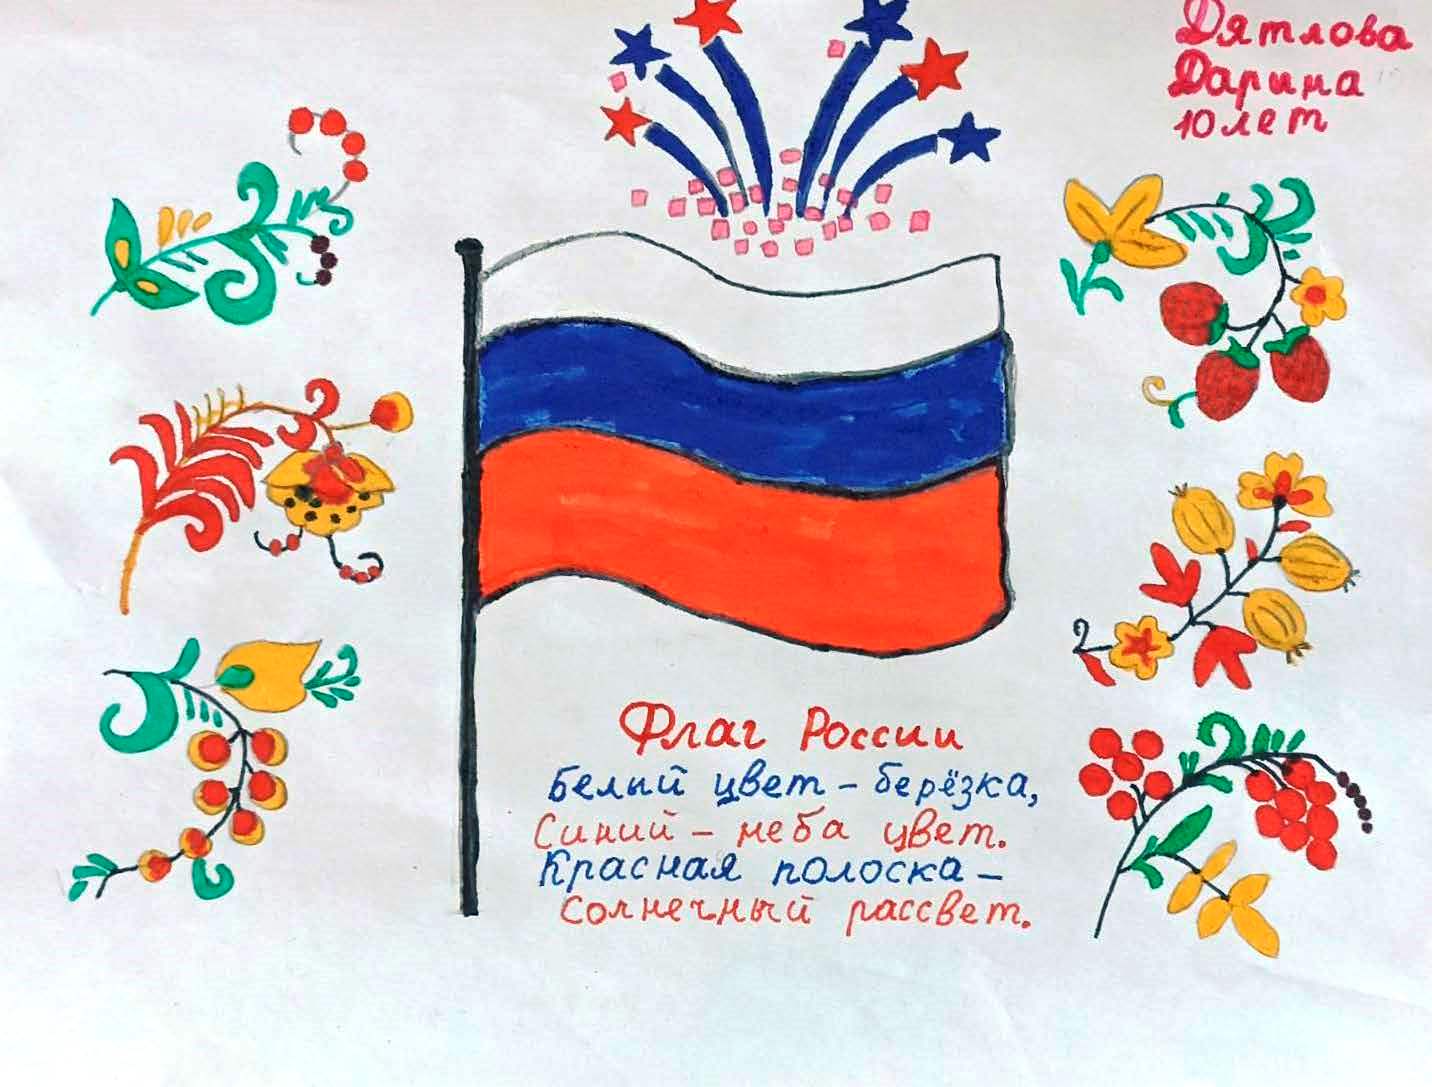 Дятлова
Дарина
10 лет
Флаг России
Белый цвет – берёзка,
Синий – неба цвет.
Красная полоска –
Солнечный рассвет.